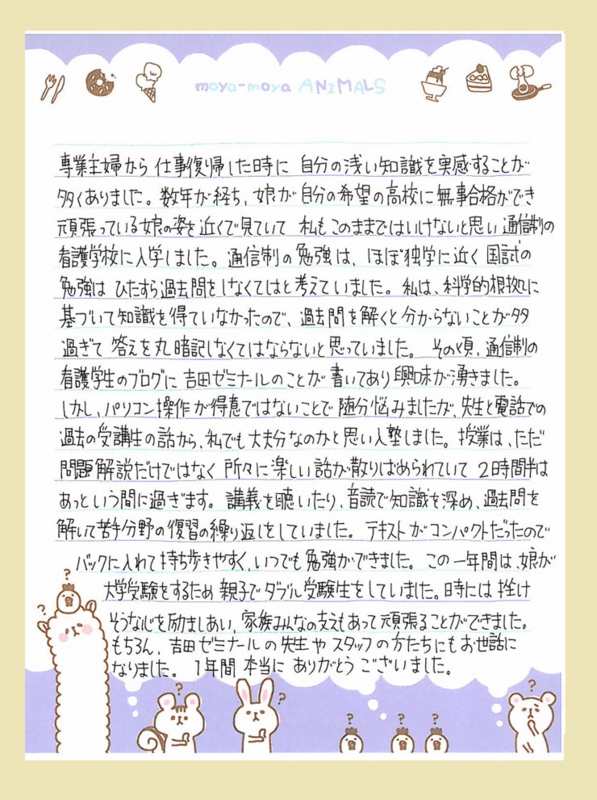 moya-moya ANIMALS
専業主婦から仕事復帰した時に 自分の浅い知識を実感することが
多くありました。数年が経ち、娘が自分の希望の高校に無事合格ができ
頑張っている娘の姿を近くで見ていて 私もこのままではいけないと思い通信制の
看護学校に入学しました。通信制の勉強は、ほぼ独学に近く国試の
勉強はひたすら過去問をしなくてはと考えていました。私は、科学的根拠に
基づいて知識を得ていなかったので、過去問を解くと分からないことが多
過ぎて答えを丸暗記しなくてはならないと思っていました。その頃、通信制の
看護学生のブログに吉田ゼミナールのことが書いてあり興味が湧きました。
しかし、パソコン操作が得意ではないことで随分悩みましたが、先生と電話での
過去の受講生の話から、私でも大丈夫なのかと思い入塾しました。授業は、ただ
問題解説だけではなく所々に楽しい話が散りばめられていて2時間半は
あっという間に過ぎます。講義を聴いたり、音読で知識を深め、過去問を
解いて苦手分野の復習の繰り返しをしていました。テキストがコンパクトだったので
バックに入れて持ち歩きやすく、いつでも勉強ができました。この一年間は、娘が
大学受験をするため親子でダブル受験生をしていました。時には挫け
そうな心を励ましあい、家族みんなの支えもあって頑張ることができました。
もちろん、吉田ゼミナールの先生やスタッフの方たちにもお世話に
なりました。1年間本当にありがとうございました。